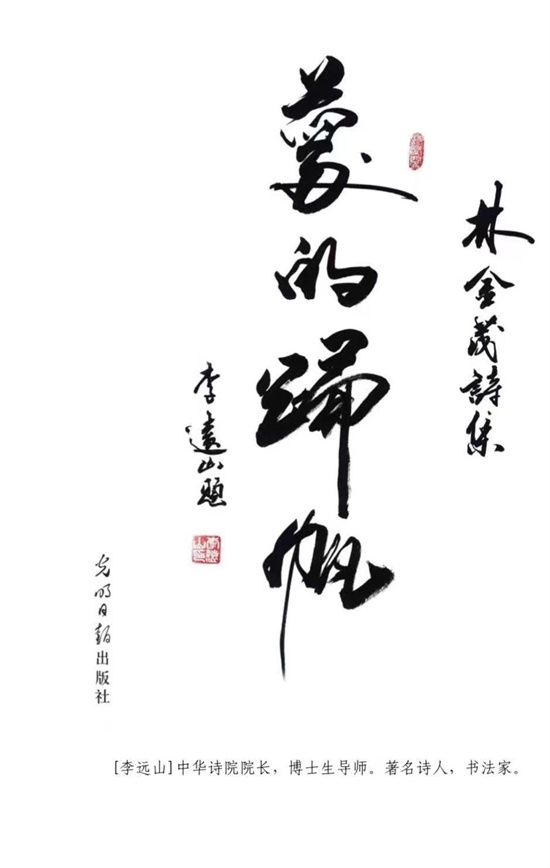 林金茂詩集
夢的歸帆
李遠山題
光明日報出版社
[李远山]中华诗院院长，博士生导师。著名诗人，书法家。